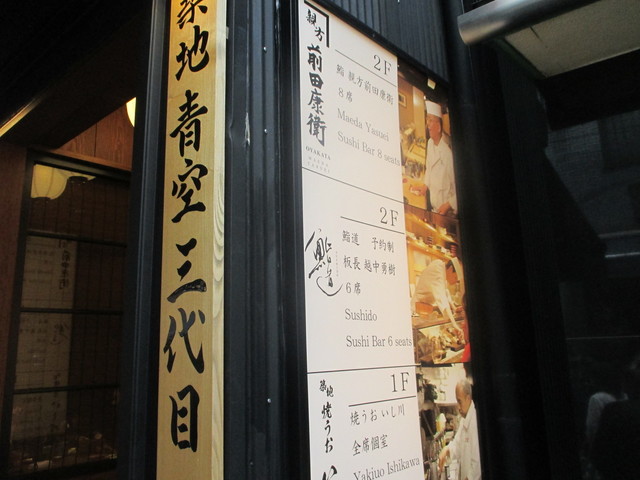 築地青空三代目
親方
前田康衛
OYAKATA
2F
鮨 親方前田康衛
8席
Maeda Yasuei
Sushi Bar 8 seats
2F
鮨道 予約制
板長 越中勇樹
6席
Sushido
Sushi Bar 6 seats
築地
焼うお
1F
焼うおいし川
全席個室
Yakiuo Ishikawa